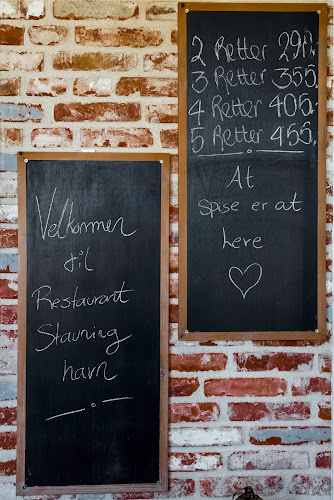 Velkommen
til
Restaurant
Stauning
havn
2 Retter 290,
3 Retter 355,
4 Retter 405,
5 Retter 455,
At
spise er at
leve